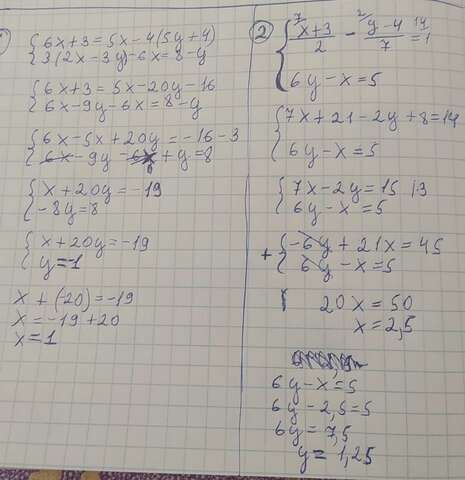 {6x+3=5x-4(5y+4)
{3(2x-3y)-6x=8-y
{6x+3=5x-20y-16
{6x-9y-6x=8-y
{6x-5x+20y=-16-3
{6x-9y-6x+y=8
{x+20y=-19
{-8y=8
{x+20y=-19
{y=1
x+(-20)=-19
x=-19+20
x=1
②
{⁷x+3/2 - ²y-4/7 = ¹⁴1
{6y-x=5
{7x+21-2y+8=14
{6y-x=5
{7x-2y=15 |·3
{6y-x=5
+{-6y+21x=45
{6y-x=5
20x=50
x=2,5
6y-x=5
6y-2,5=5
6y=7,5
y=1,25